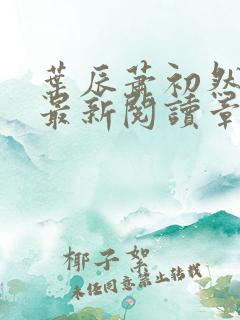 葉辰蕭初然
最新閱讀章
椰子絮
未经同意禁止转载